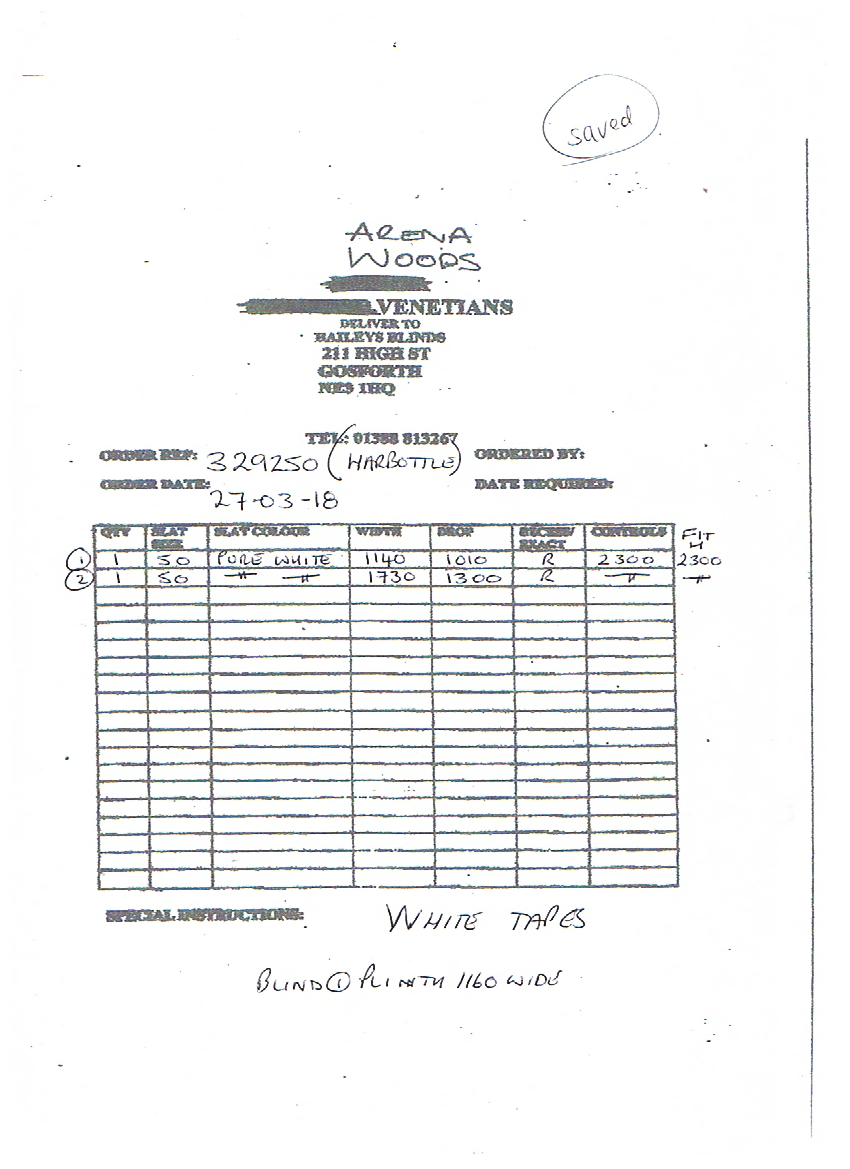 saved
ARENA
WOODS
VENETIANS
DELIVER TO
BAILEYS BLINDS
211 HIGH ST
GOSFORTH
NE3 1HQ
TEL: 01388 813267
ORDER REF: 329250 (HARBOTTLE) ORDERED BY:
ORDER DATE: 27-03-18 DATE REQUIRED:
QTY SLAT SIZE SLAT COLOUR WIDTH DROP RECESS/EXACT CONTROLS FIT H
1 1 50 PURE WHITE 1140 1010 R 2300 2300
2 1 50 " " 1730 1300 R " "
SPECIAL INSTRUCTIONS: WHITE TAPES
BLIND 1 PLINTH 1160 WIDE